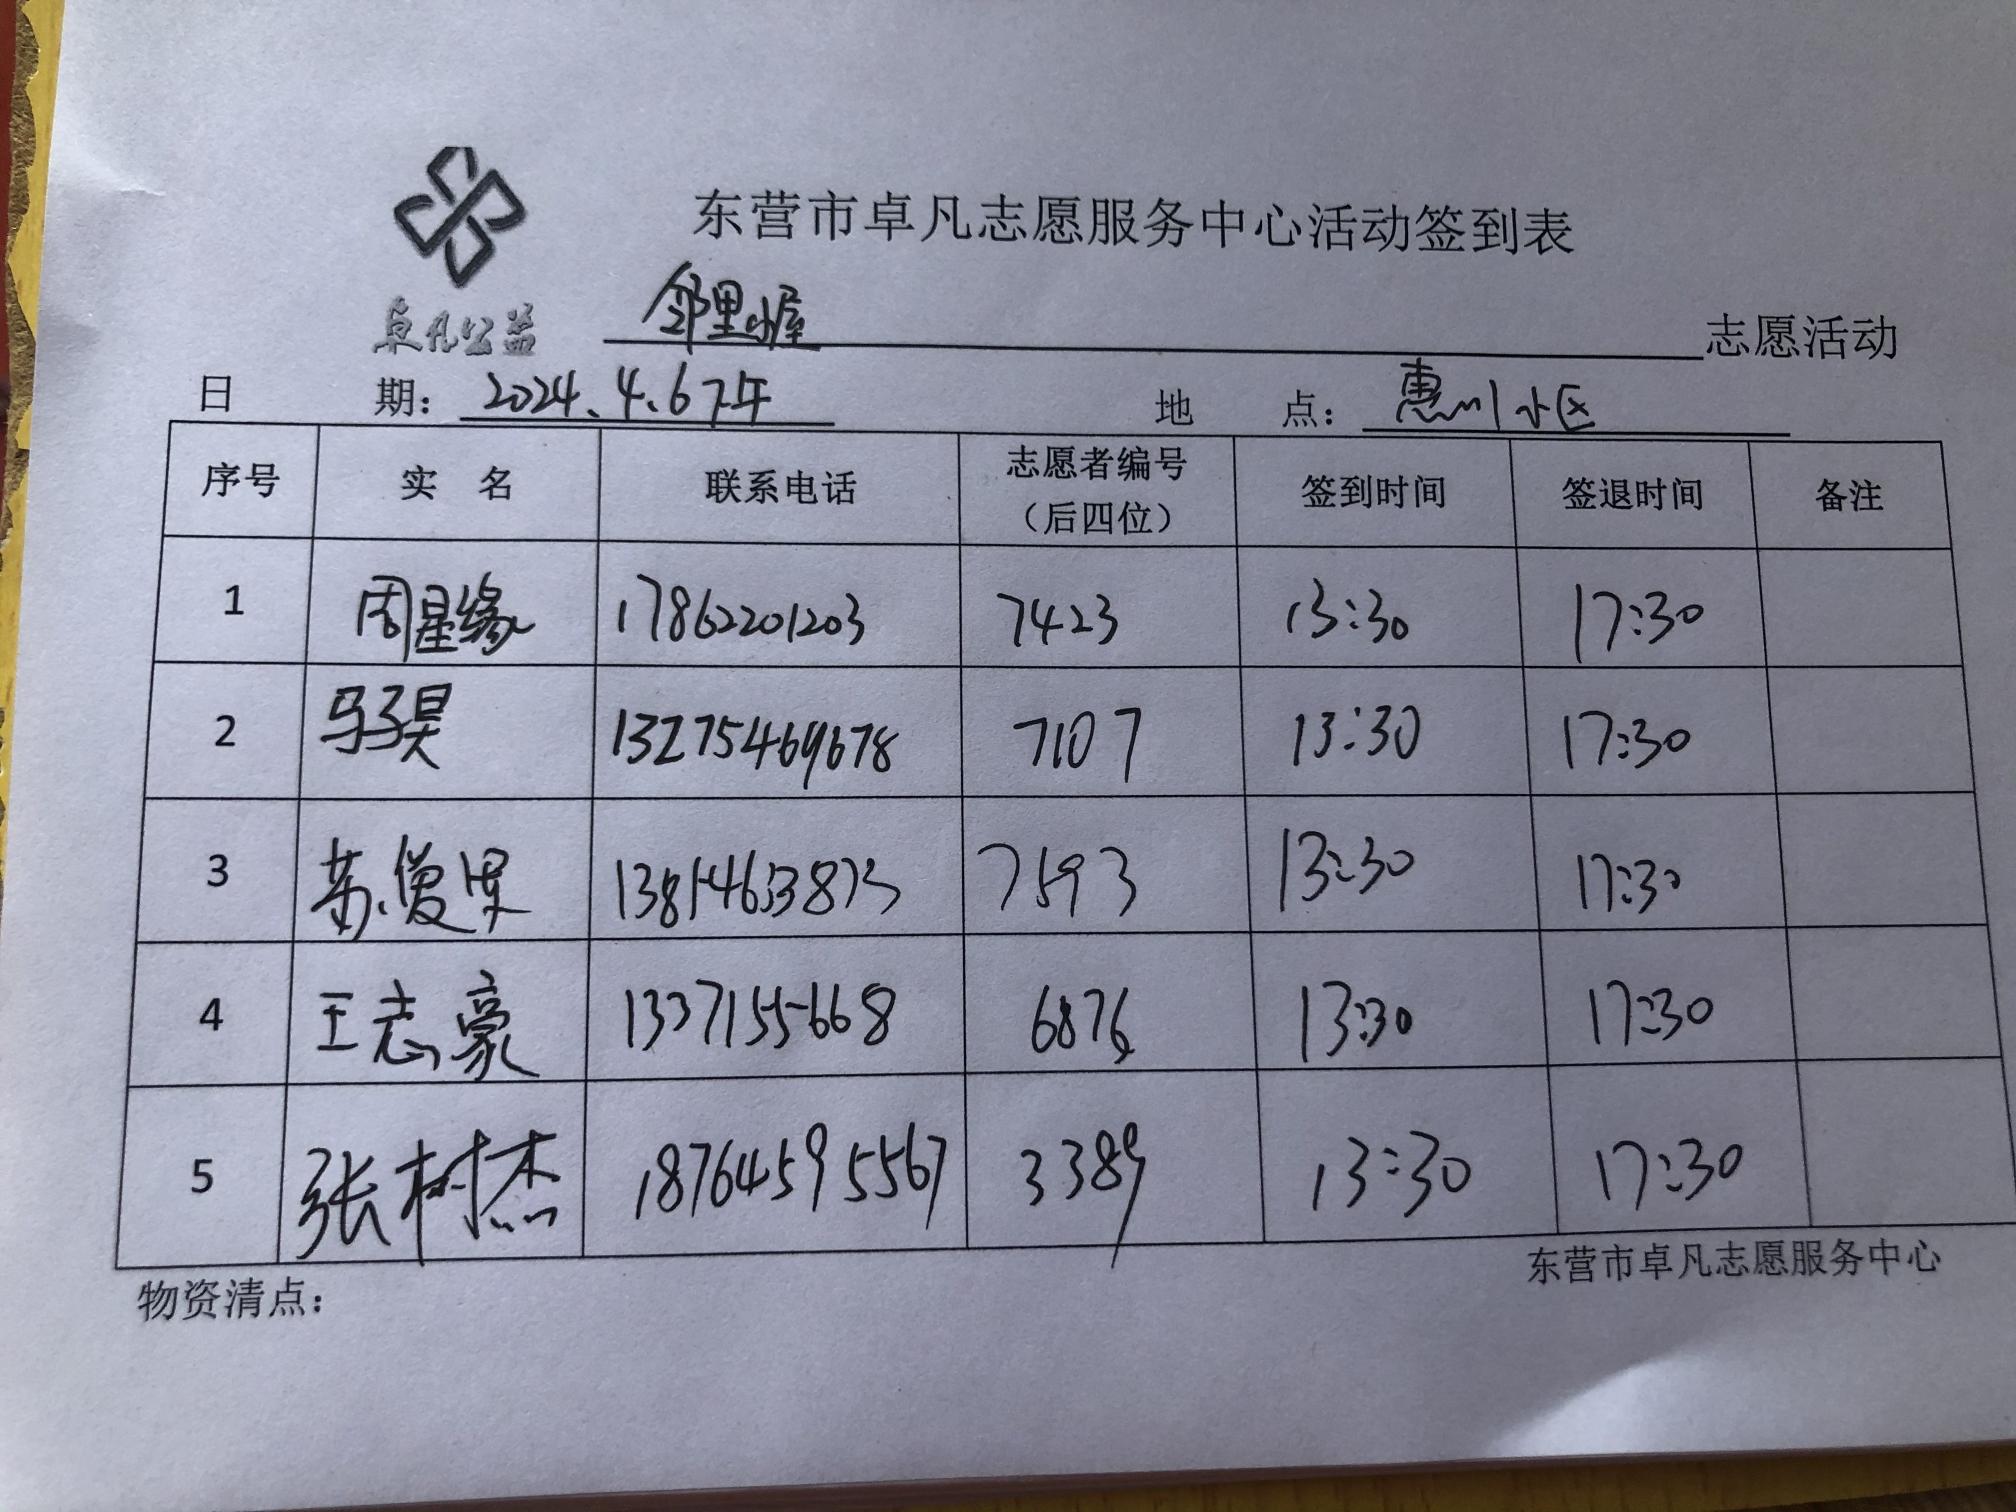 东营市卓凡志愿服务中心活动签到表
卓凡公益
邻里小屋 志愿活动
日 期：2024.4.6下午 地 点：惠川小区
序号 实 名 联系电话 志愿者编号（后四位） 签到时间 签退时间 备注
1 周星缘 17862201203 7423 13:30 17:30
2 马子昊 13275469678 7107 13:30 17:30
3 苏俊果 13854633873 7593 13:30 17:30
4 王志豪 13371555668 6876 13:30 17:30
5 张树杰 18764595567 3389 13:30 17:30
物资清点： 东营市卓凡志愿服务中心